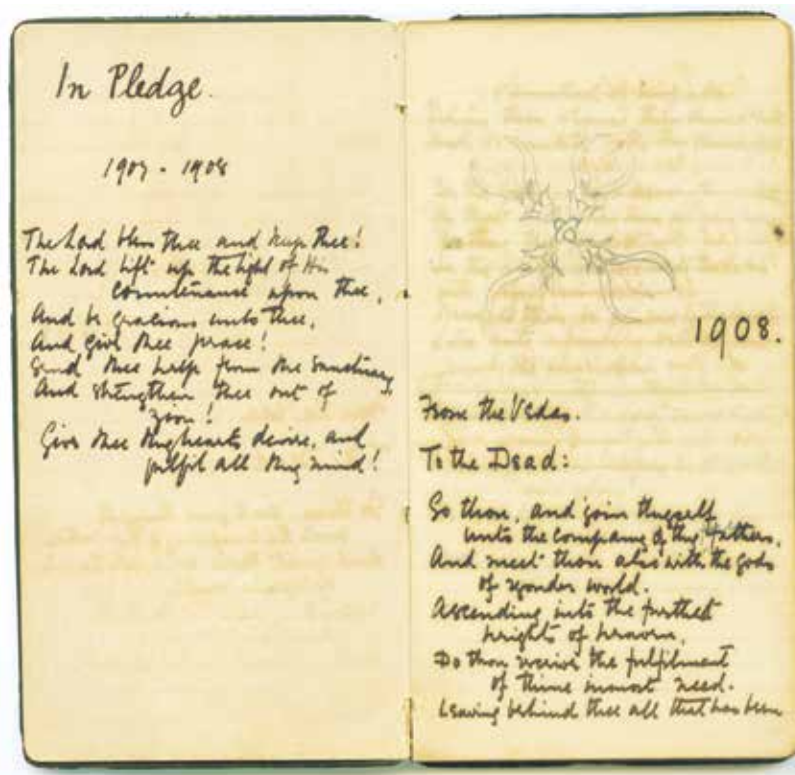 In Pledge.
1907 - 1908
The Lord bless thee and keep thee!
The Lord lift up the light of His
countenance upon thee,
And be gracious unto thee,
And give thee peace!
Send thee help from the Sanctuary
And strengthen thee out of
Zion!
Give thee thy heart's desire, and
fulfil all thy mind!
1908.
From the Vedas.
To the Dead:
Go thou, and join thyself
unto the company of thy Fathers,
And meet thou also with the gods
of yonder world.
Ascending into the furthest
heights of heaven,
Do thou receive the fulfilment
of thine inmost need.
Leaving behind thee all that has been